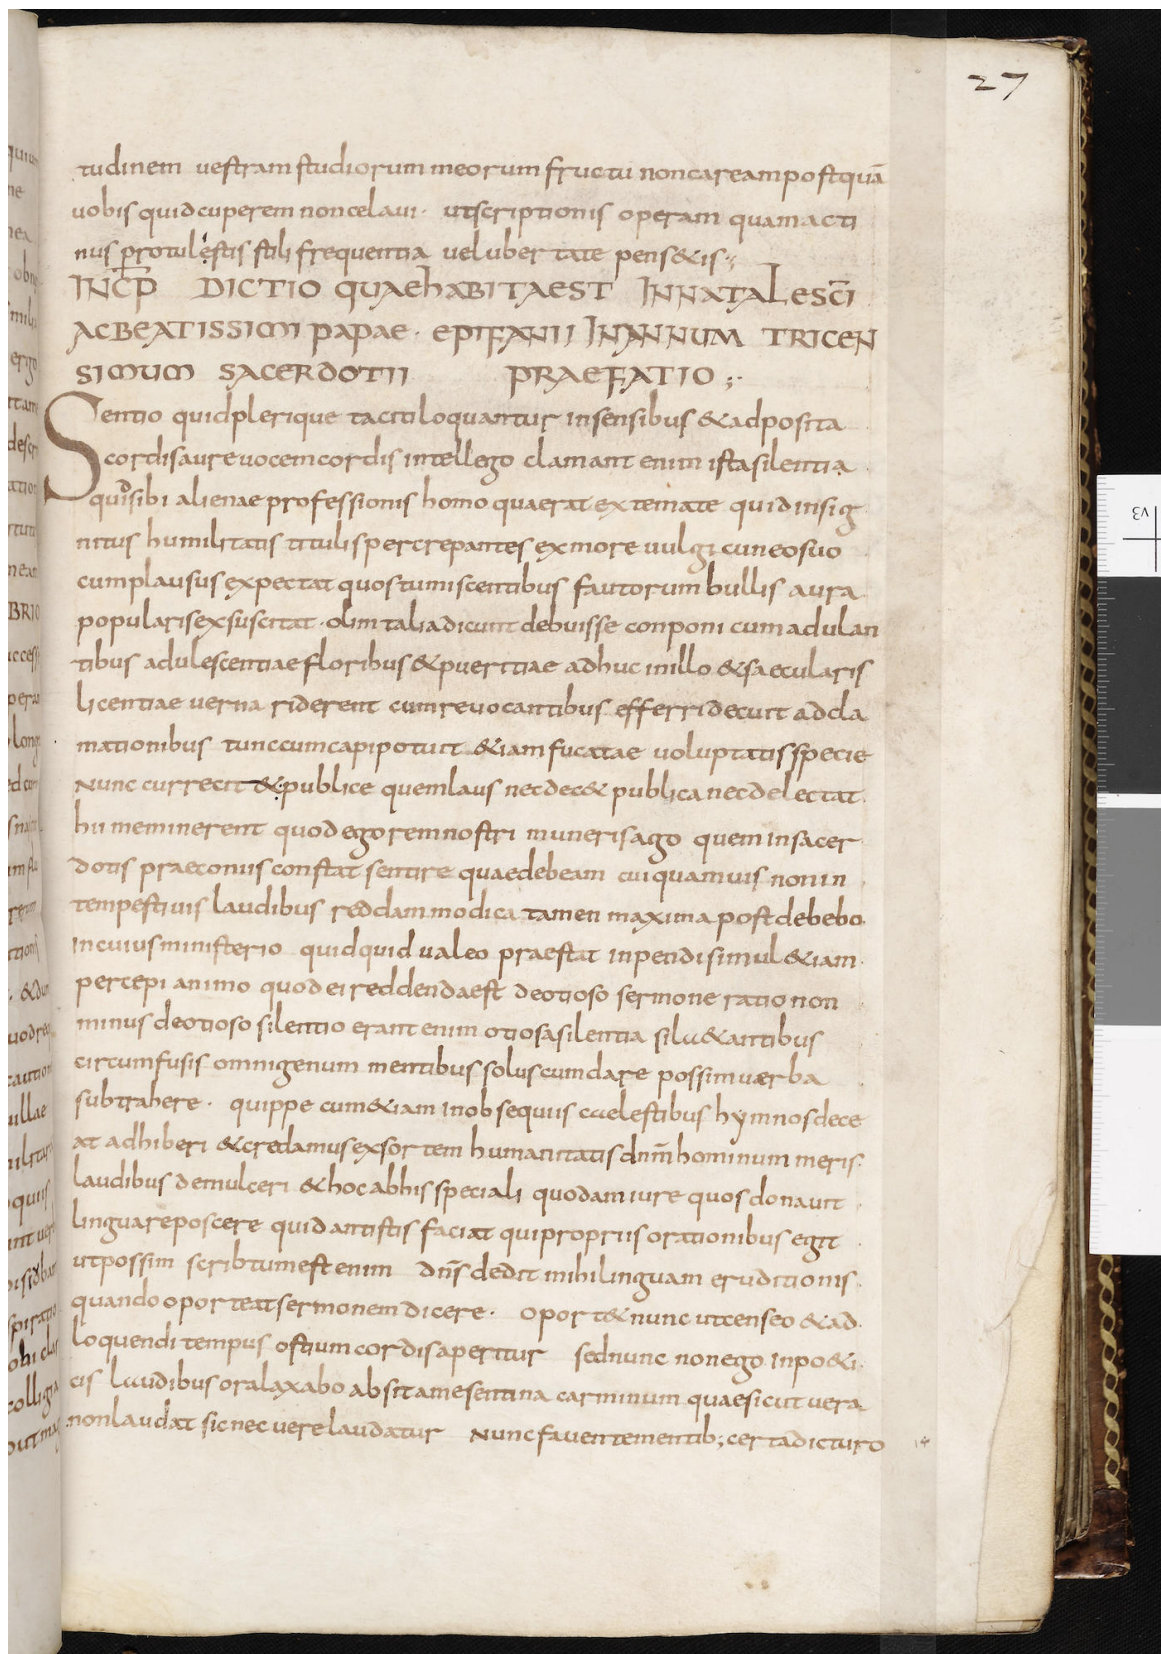 27
tudinem vestram studiorum meorum fructu non caream postquā
uobis quid cuperem non celaui · ut scriptionis operam quam acti
nus protulestis stili frequentia uel ubertate pens&is ·,
INCP̄ DICTIO QUAE HABITA EST IN NATALE SC̄I
AC BEATISSIMI PAPAE · EPIFANII IN ANNUM TRICEN
SIMUM SACERDOTII PRAEFATIO ;·
Sentio quid plerique taciti loquantur in sensibus & adposita
cordis aure uocem cordis intellego clamant enim ista silentia
quid sibi alienae professionis homo quaerat extemate quid insig
nitus humilitatis titulis percrepantes ex more uulgi cuneo suo
cum plausus expectat quos tumiscentibus fautorum bullis aura
popularis exsuscitat · olim talia dicunt debuisse conponi cum adulan
tibus adulescentiae floribus & pueritiae adhuc in illo & saecularis
licentiae uerna riderent cum reuocantibus efferri decuit adcla
mationibus tunc cum capi potuit &iam fucatae uoluptatis specie
Nunc currecit & publice quem laus nec dec& publica nec delectat ·
hii meminerent quod ego rem nostri muneris ago quem in sacer
dotis praeconiis constat sentire quae debeam cui quamuis non in
tempestiuis laudibus reddam modica tamen maxima post debebo
in cuius ministerio quidquid ualeo praestat inpendi simul &iam
percepi animo quod ei reddenda est de otioso sermone ratio non
minus de otioso silentio erant enim otiosa silentia silu&antibus
circumfusis omnigenum mentibus solus cum dare possim uerba
subtrahere · quippe cum &iam in obsequiis caelestibus hymnos dece
at adhiberi & credamus exsortem humanitatis dnm̄ hominum meris
laudibus demulceri & hoc ab his speciali quodam iure quos donauit
lingua reposcere quid antistis faciat qui propriis orationibus egit
ut possim scribtum est enim dn̄s dedit mihi linguam eruditionis
quando oporteat sermonem dicere · oport& nunc ut censeo & ad
loquendi tempus ostium cordis aperitur sed nunc non ego in po&i
cis laudibus ora laxabo absit a me sentina carminum quae sicut uera
non laudat sic nec uere laudatur Nunc fauente mentib; certa dicturo